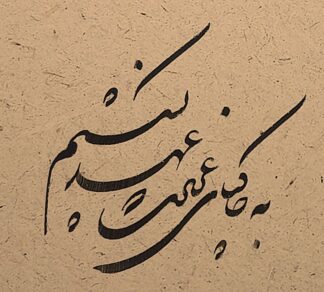 به خاکپای عزیزت که
عهد نشکستم